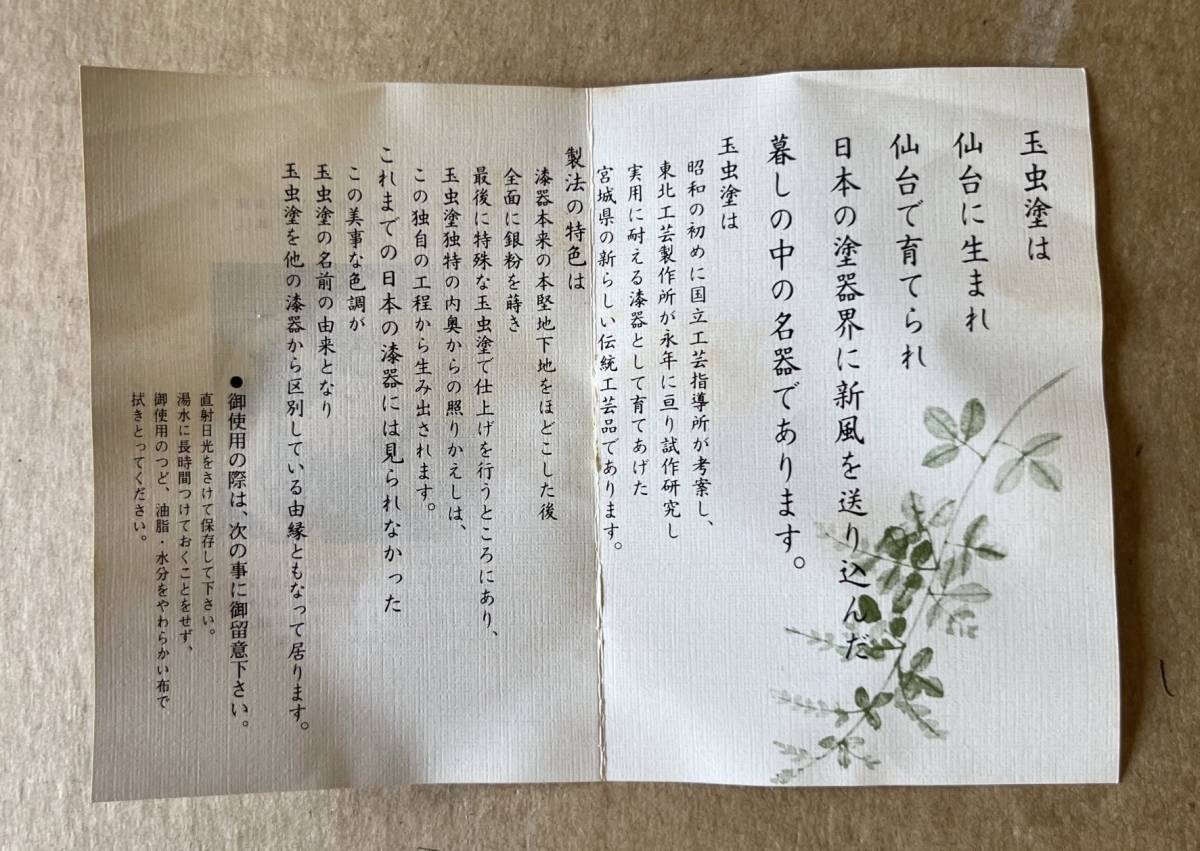 玉虫塗は
仙台に生まれ
仙台で育てられ
日本の塗器界に新風を送り込んだ
暮しの中の名器であります。
玉虫塗は
昭和の初めに国立工芸指導所が考案し、
東北工芸製作所が永年に亘り試作研究し
実用に耐える漆器として育てあげた
宮城県の新らしい伝統工芸品であります。
製法の特色は
漆器本来の本堅地下地をほどこした後
全面に銀粉を蒔き
最後に特殊な玉虫塗で仕上げを行うところにあり、
玉虫塗独特の内奥からの照りかえしは、
この独自の工程から生み出されます。
これまでの日本の漆器には見られなかった
この美事な色調が
玉虫塗の名前の由来となり
玉虫塗を他の漆器から区別している由縁ともなって居ります。
●御使用の際は、次の事に御留意下さい。
直射日光をさけて保存して下さい。
湯水に長時間つけておくことをせず、
御使用のつど、油脂・水分をやわらかい布で
拭きとってください。